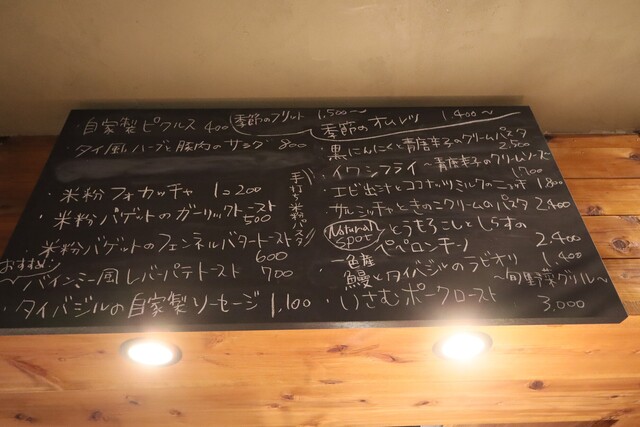 ・自家製ピクルス 400
季節のフリット 1,500〜
季節のオムレツ 1,400〜
・タイ風ハーブと豚肉のサラダ 800
・米粉フォカッチャ 1コ200
・米粉バゲットのガーリックトースト
500
・米粉バゲットのフェンネルバタートースト
600
おすすめ!
バインミー風レバーパテトースト 700
・タイバジルの自家製ソーセージ 1,100
手打ち米粉パスタ
・黒にんにくと青唐辛子のクリームパスタ
2,500
・イワシフライ〜青唐辛子のクリームソース〜
1,700
・エビ出汁とココナッツミルクのニョッキ 1,800
・サルシッチャときのこクリームのパスタ 2,400
Natural
spot
とうもろこしとしらすの
ペペロンチーノ 2,400
・一色産
鰻とタイバジルのラビオリ 1,400
〜旬野菜グリル〜
・いさむポークロースト
3,000